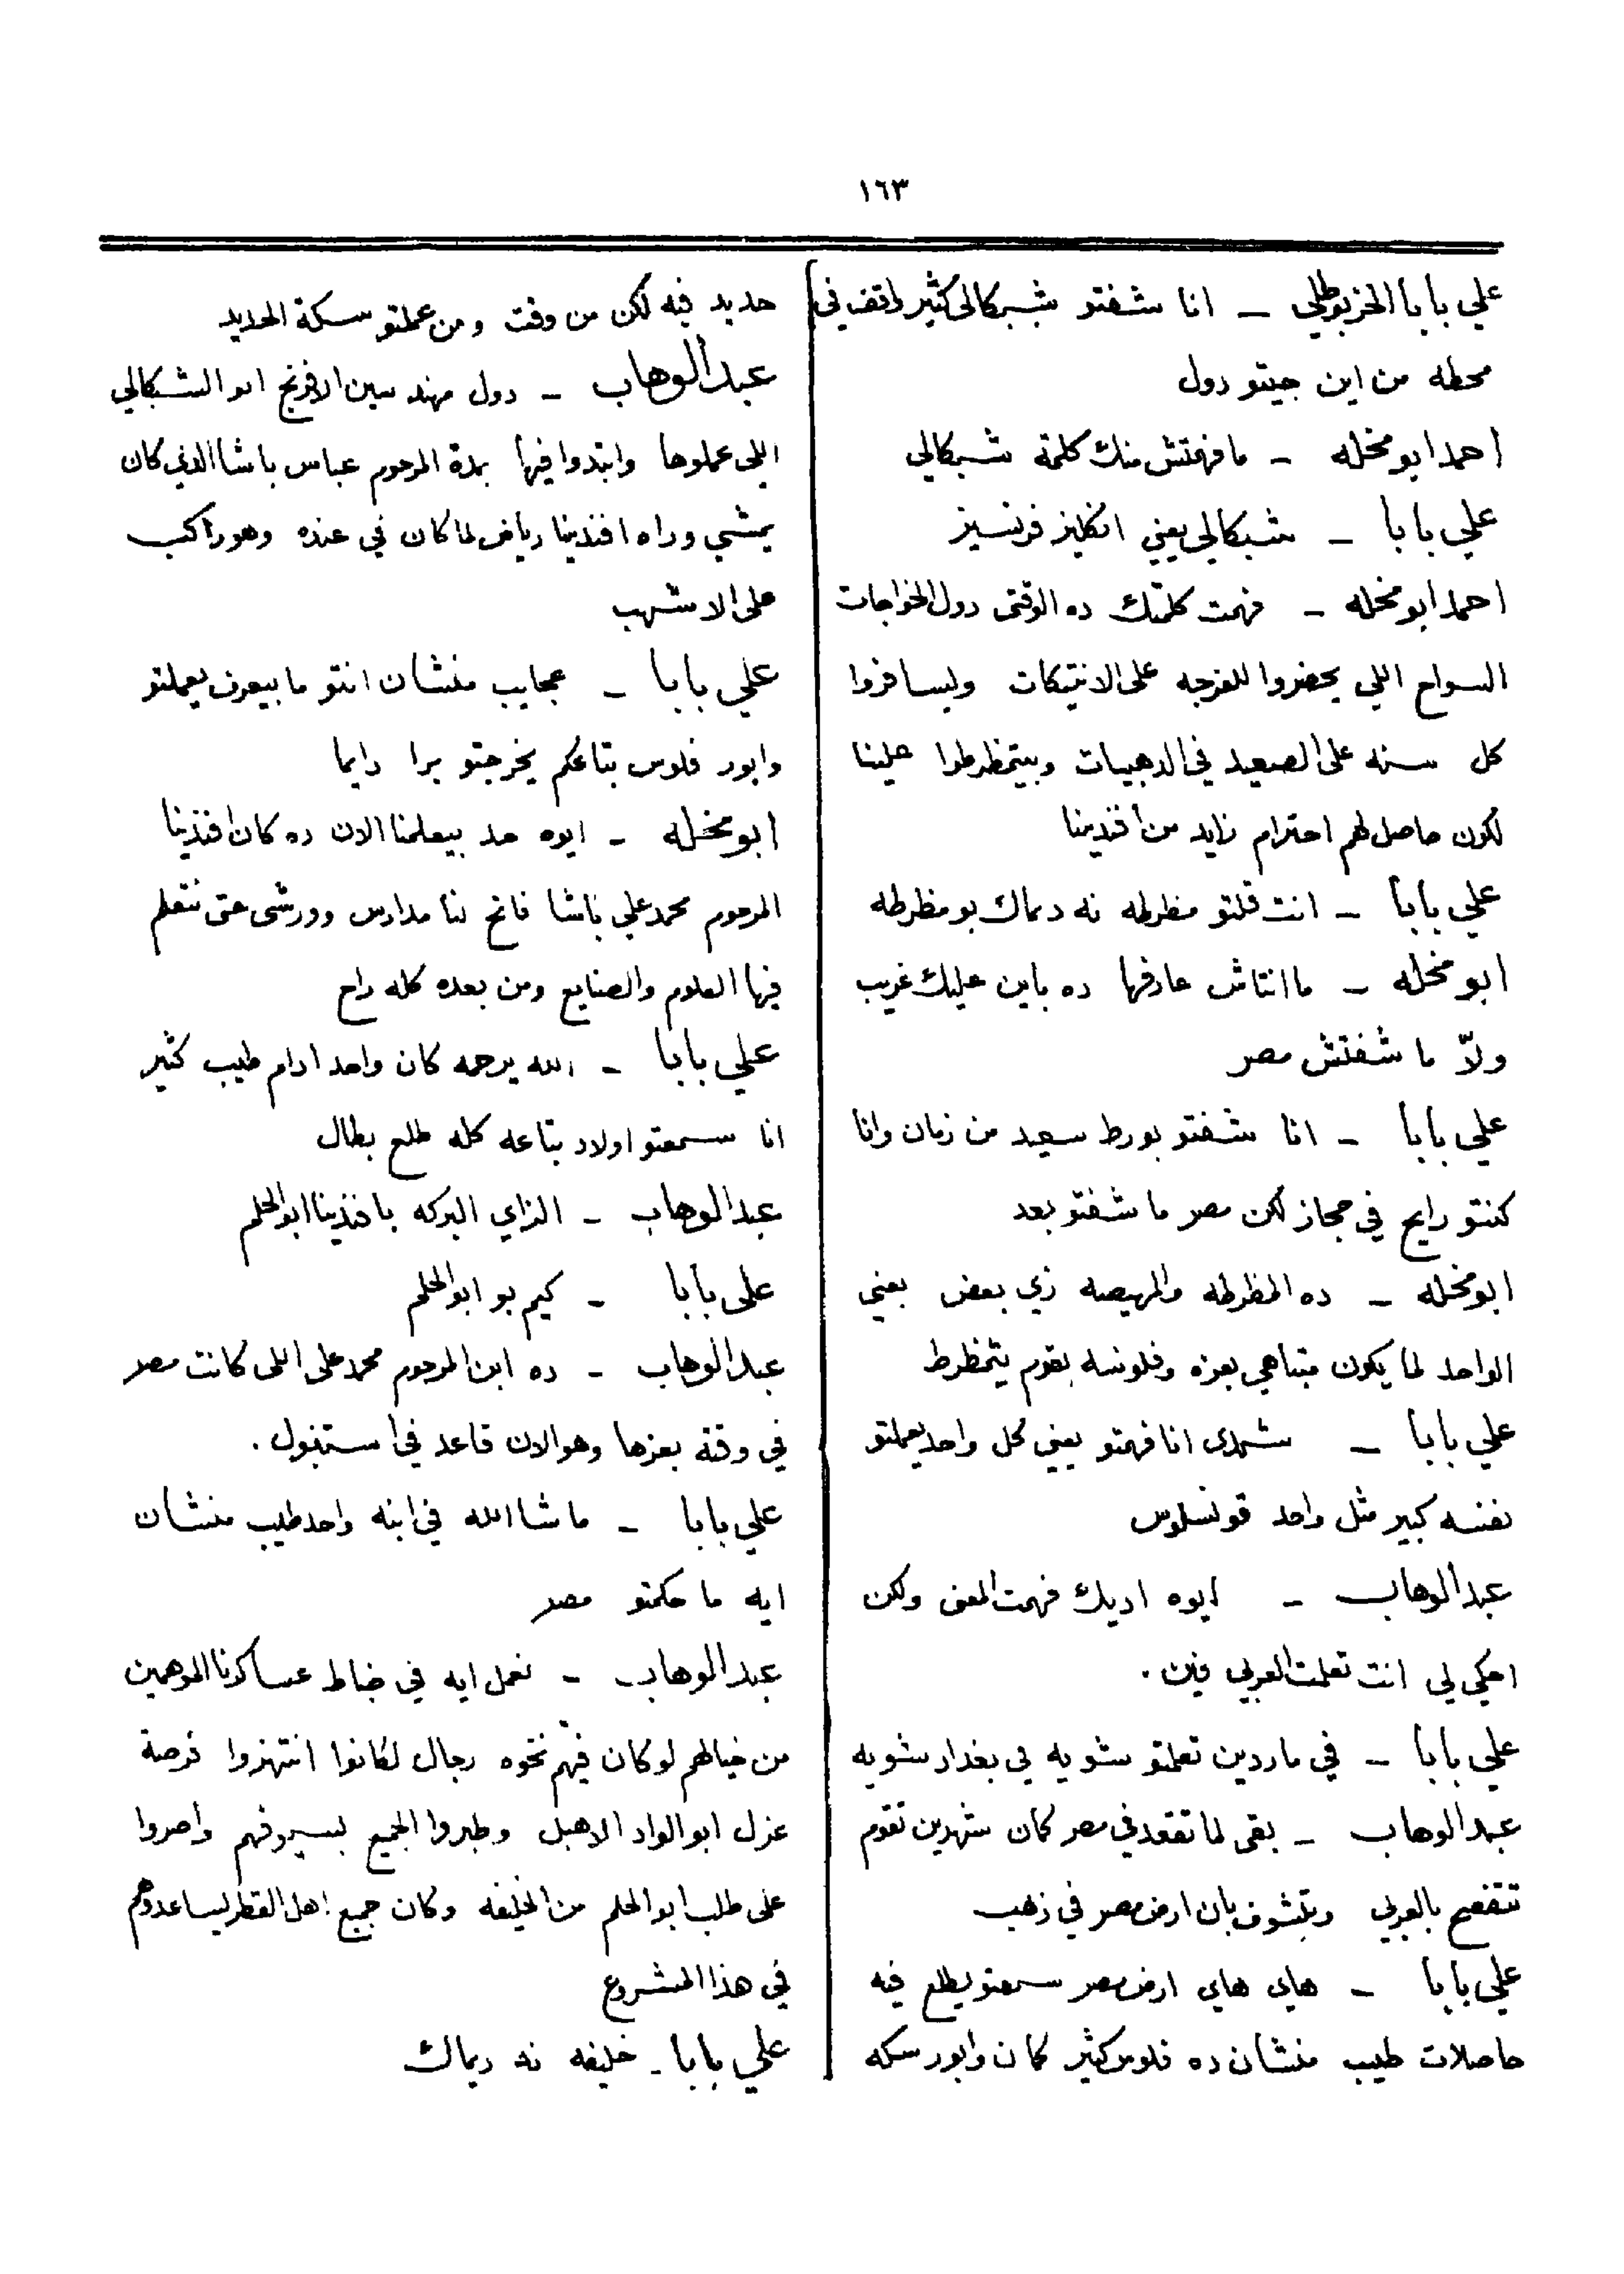 ١٦٣
علي بابا الخربوطلي — انا شفتو شبكالي كثير واقف في
محطه من اين جيتو دول
احمد ابو مخله — ما فهمتش منك كلمة شبكالي
علي بابا — شبكالي يعني انكليز فرنسيز
احمد ابو مخله — فهمت كلمتك ده الوقتى دول الخواجات
السواح اللي يحضروا للفرجه على الانتيكات وليسافروا
كل سنه على الصعيد في الدهبيات وبيتمظرطوا علينا
لكون حاصل لهم احترام زايد من أفندينا
علي بابا — انت قلتو مظرطه نه دماك بو مظرطه
ابو مخله — ما انتاش عارفها ده باين عليك غريب
ولاّ ما شفتش مصر
علي بابا — انا شفتو بورط سعيد من زمان وانا
كنتو رايح في حجاز لكن مصر ما شفتو بعد
ابو مخله — ده المظرطه والهيصه زي بعض يعني
الواحد لما يكون متباهي بعزه وفلوسه يقوم يتمظرط
علي بابا — شمدى انا فهمتو يعني كل واحد يعملتو
نفسه كبير مثل واحد قونسلوس
عبد الوهاب — ايوه اديك فهمت المعنى ولكن
احكي لي انت تعلمت العربي فين .
علي بابا — في ماردين تعلمتو شويه في بغداد شويه
عبد الوهاب — بقى لما تقعد في مصر كمان شهرين تقوم
تتفصح بالعربي وبتشوف بان ارض مصر في زهب
علي بابا — هاي هاي ارض مصر سمعتو يطلع فيه
حاصلات طيب منشان ده فلوس كثير كمان وابور سكه
حديد فيه لكن من وقت ومن عملتو سكة الحديد
عبد الوهاب — دول مهندسين الافرنج ابو الشبكالي
اللي عملوها وابتدوا فيها بمدة المرحوم عباس باشا الذي كان
يمشي وراه افندينا رياض لما كان في عنده وهو راكب
على الاشهب
علي بابا — عجايب منشان انتو ما بيعرف يعملتو
وابور فلوس بتاعكم يخرجتو برا دايما
ابو مخله — ايوه حد بيعلمنا الان ده كان افندينا
المرحوم محمد علي باشا فاتح لنا مدارس وورش حتى نتعلم
فيها العلوم والصنايع ومن بعده كله راح
علي بابا — الله يرحمه كان واحد ادام طيب كثير
انا سمعتو اولاد بتاعه كله طلع بطال
عبد الوهاب — ازاي البركه بافندينا ابو الحلم
على بابا — كيم بو ابو الحلم
عبد الوهاب — ده ابن المرحوم محمد على اللى كانت مصر
في وقته بعزها وهو الان قاعد في استنبول .
علي بابا — ما شا الله في ابنه واحد طيب منشان
ايه ما حكمتو مصر
عبد الوهاب — نعمل ايه في ضباط عساكرنا الموهمين
من خيالهم لو كان فيهم نخوه رجال لكانوا انتهزوا فرصة
عزل ابو الواد الاهبل وطبروا الجميع بسيوفهم واصروا
على طلب ابو الحلم من الخليفه وكان جميع اهل القطر ليساعدوهم
في هذا المشروع
علي بابا — خليفه نه ديماك